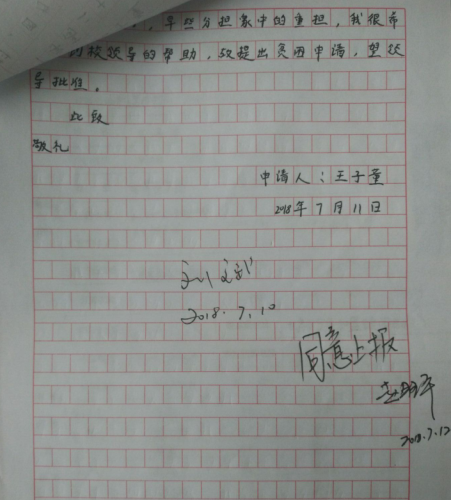 ，早些分担家中的重担，我很希
校领导的帮助，故提出贫困申请，望领
导批准。
此致
敬礼
申请人：王子童
2018年7月11日
2018.7.10
同意上报
2018.7.12